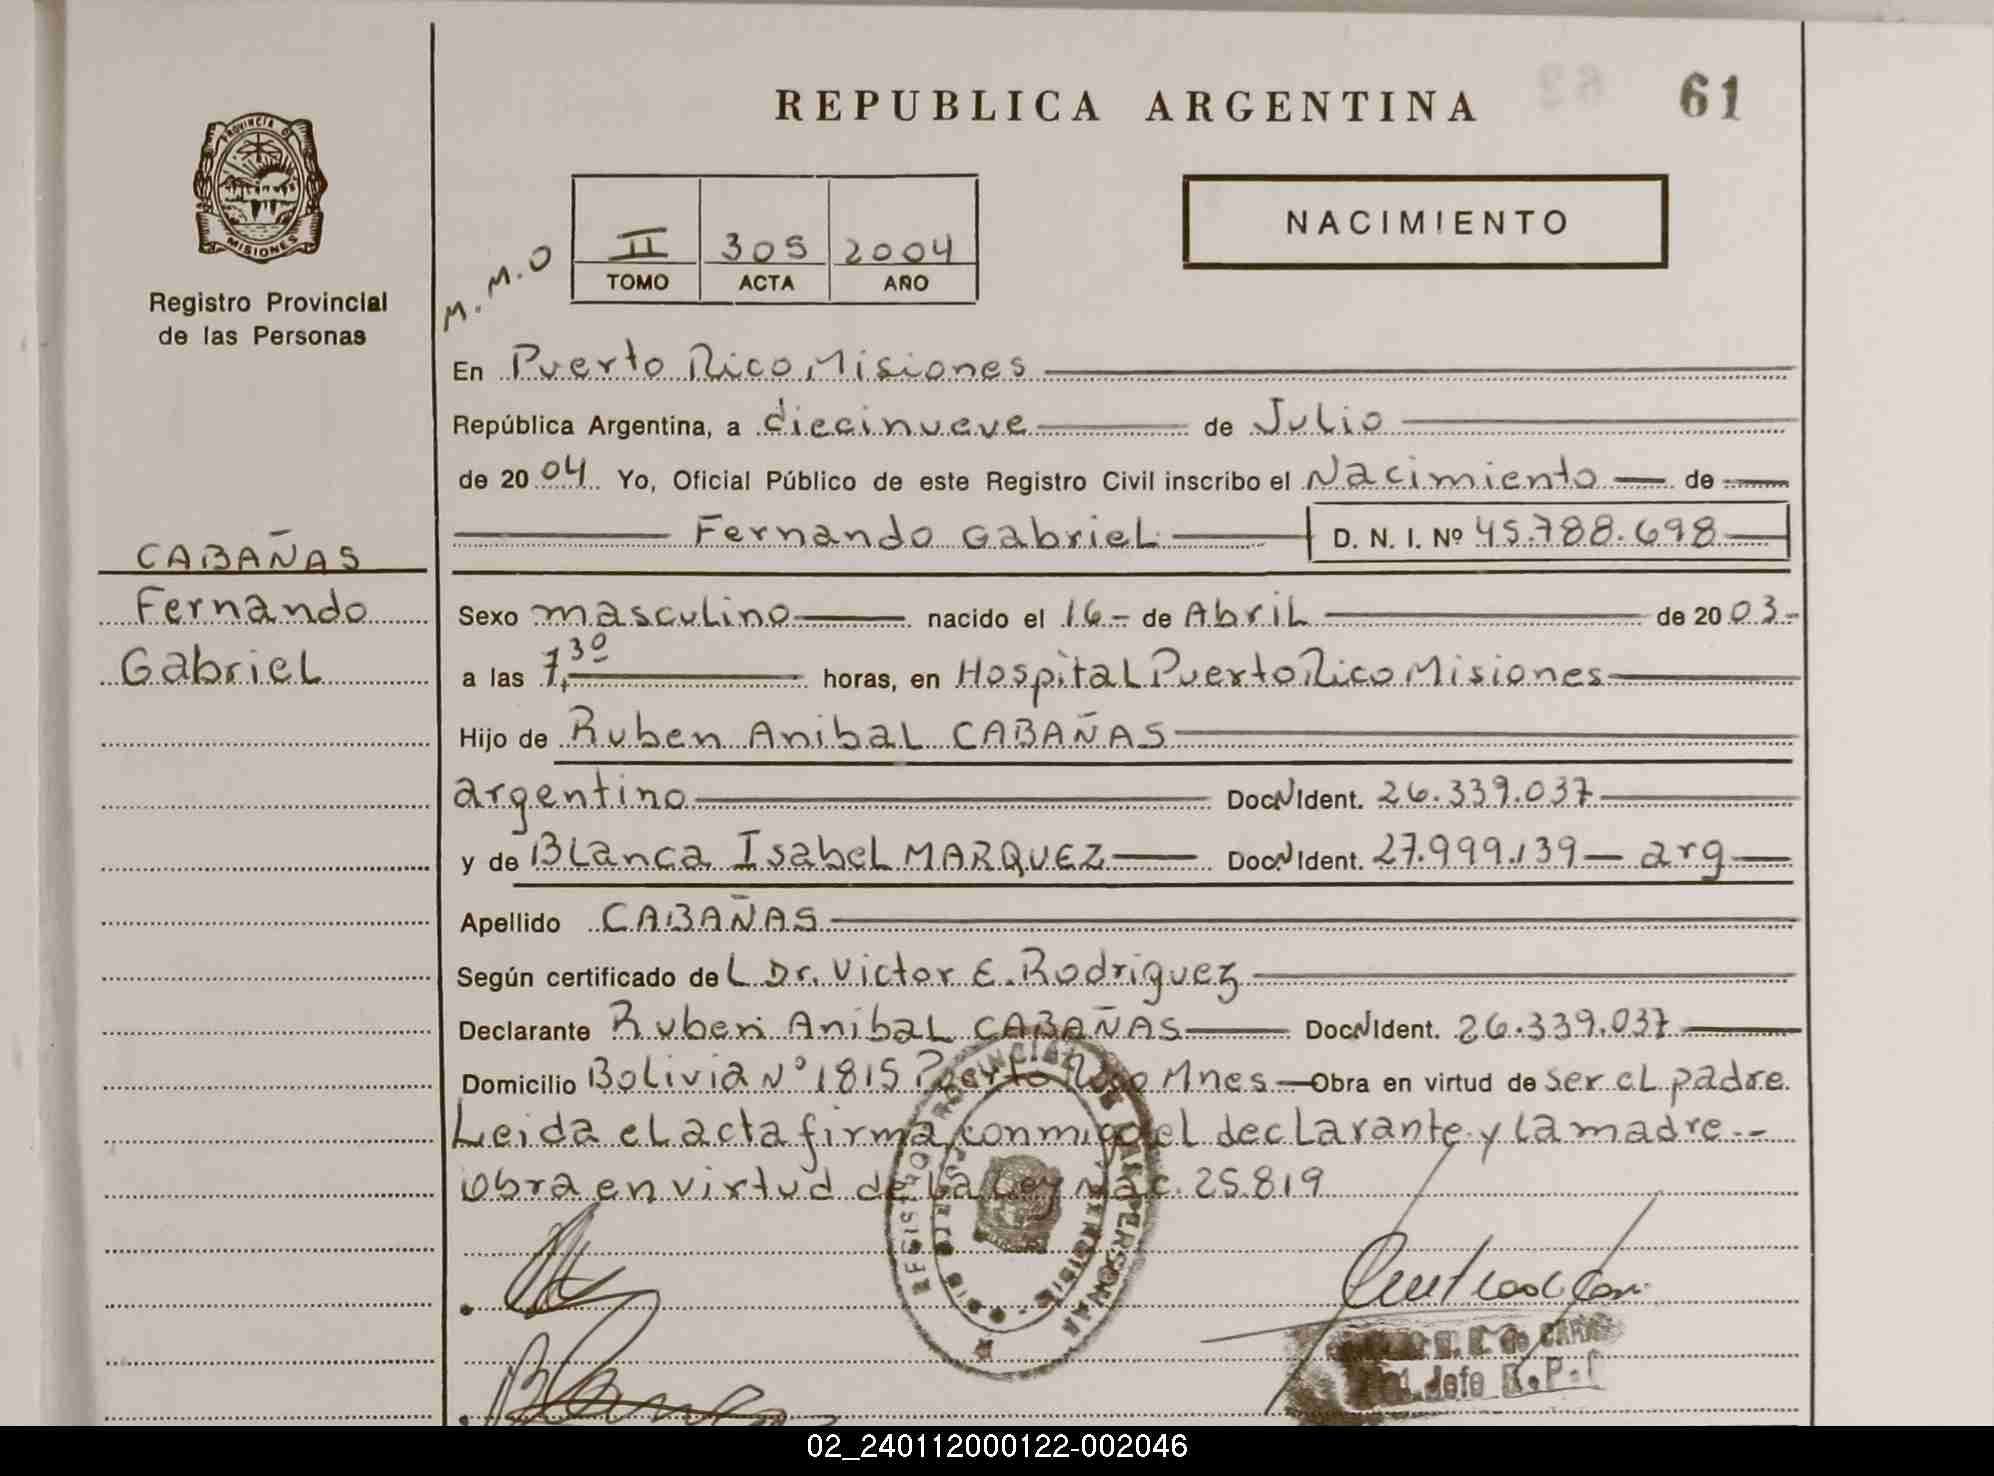 REPUBLICA ARGENTINA
61
PROVINCIA D
MISIONES
Registro Provincial
de las Personas
M.M.O
II 305 2004
TOMO ACTA AÑO
NACIMIENTO
En Puerto Rico Misiones
República Argentina, a diecinueve de Julio
de 2004 Yo, Oficial Público de este Registro Civil inscribo el Nacimiento de
Fernando Gabriel D. N. I. Nº 45.788.698
CABAÑAS
Fernando
Gabriel
Sexo masculino nacido el 16 de Abril de 2003
a las 7,30 horas, en Hospital Puerto Rico Misiones
Hijo de Ruben Anibal CABAÑAS
argentino Doc. N Ident. 26.339.037
y de Blanca Isabel MARQUEZ Doc. N Ident. 27.999.139 arg
Apellido CABAÑAS
Según certificado del Dr. Victor E. Rodriguez
Declarante Ruben Anibal CABAÑAS Doc. N Ident. 26.339.037
Domicilio Bolivia Nº 1815 Puerto Rico Mnes Obra en virtud de ser el padre.
Leida el acta firma conmigo el declarante y la madre.-
obra en virtud de la Ley Nac. 25.819
REGISTRO PROVINCIAL DE LAS PERSONAS
MISIONES
Jefe R.P.
02_240112000122-002046